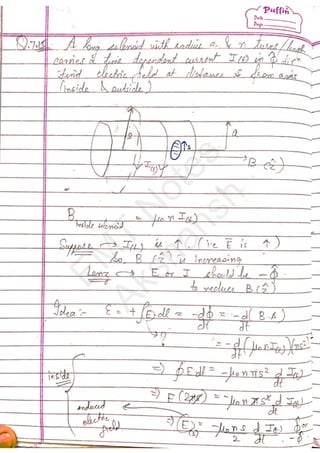 Puffin
Date
Page
Q.7.15 A long solenoid with radius a & n turns/length
carries a time dependent current I(t) in φ̂ dirn
find electric field at distance s from axis
(inside & outside)
a
s
I(t)
B (ẑ)
B inside solenoid = μ₀ n I(t)
Suppose → I(t) is ↑. (i.e I is ↑)
So B (ẑ) is increasing
Lenz → E or I should be -φ̂
to reduce B (ẑ)
Idea:- ε = + ∫E.dl = -dφ/dt = -d/dt (B.A)
= -d/dt (μ₀ n I(t)) (πs²)
inside
⇒ ∮E dl = -μ₀ n πs² d I(t)/dt
⇒ E (2πs) = -μ₀ n π s² d I(t)/dt
induced electric field
⇒ (E)(s) = -μ₀ n s/2 d I(t)/dt φ̂ or -φ̂
EMT Notes
Akash